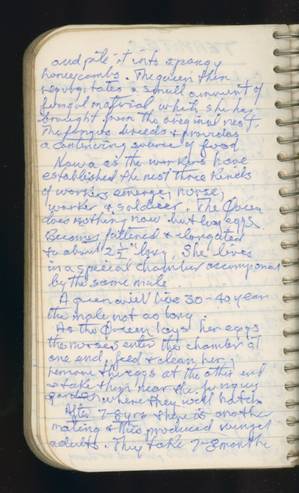 and pile it into spongy
honeycombs. The queen then
regurgitates a small amount of
fungal material which she has
brought from the original nest.
The fungus breeds & provides
a continuing source of food
Now as the workers have
established the nest three kinds
of workers emerge, nurse,
worker & soldier. The Queen
does nothing now but lay eggs
Becomes fattened & elongated
to about 2½" long. She lives
in a special chamber accompanied
by the same male.
A queen will live 30-40 years
the male not as long.
As the Queen lays her eggs
the nurses enter the chamber at
one end, feed & clean her,
remove the eggs at the other end
& take them near the fungus
garden where they will hatch
After 7-8 yrs there is another
mating & this produced winged
adults. They take 7-8 months